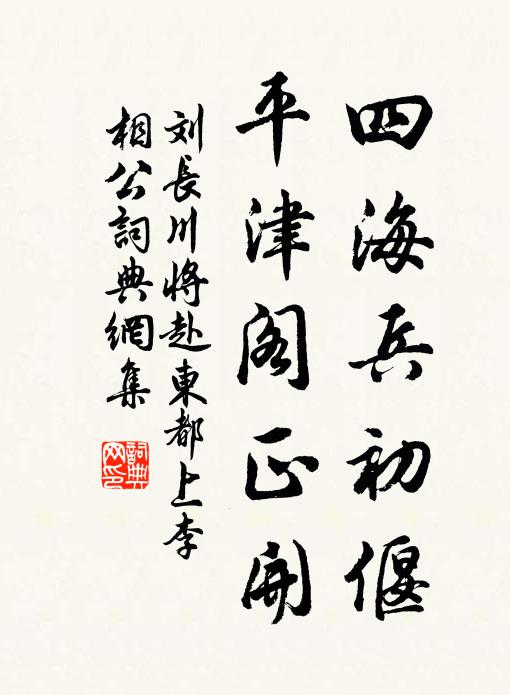 四海兵初偃
平津阁正開
刘長川將赴東都上李
相公詞典網集
詞典网印